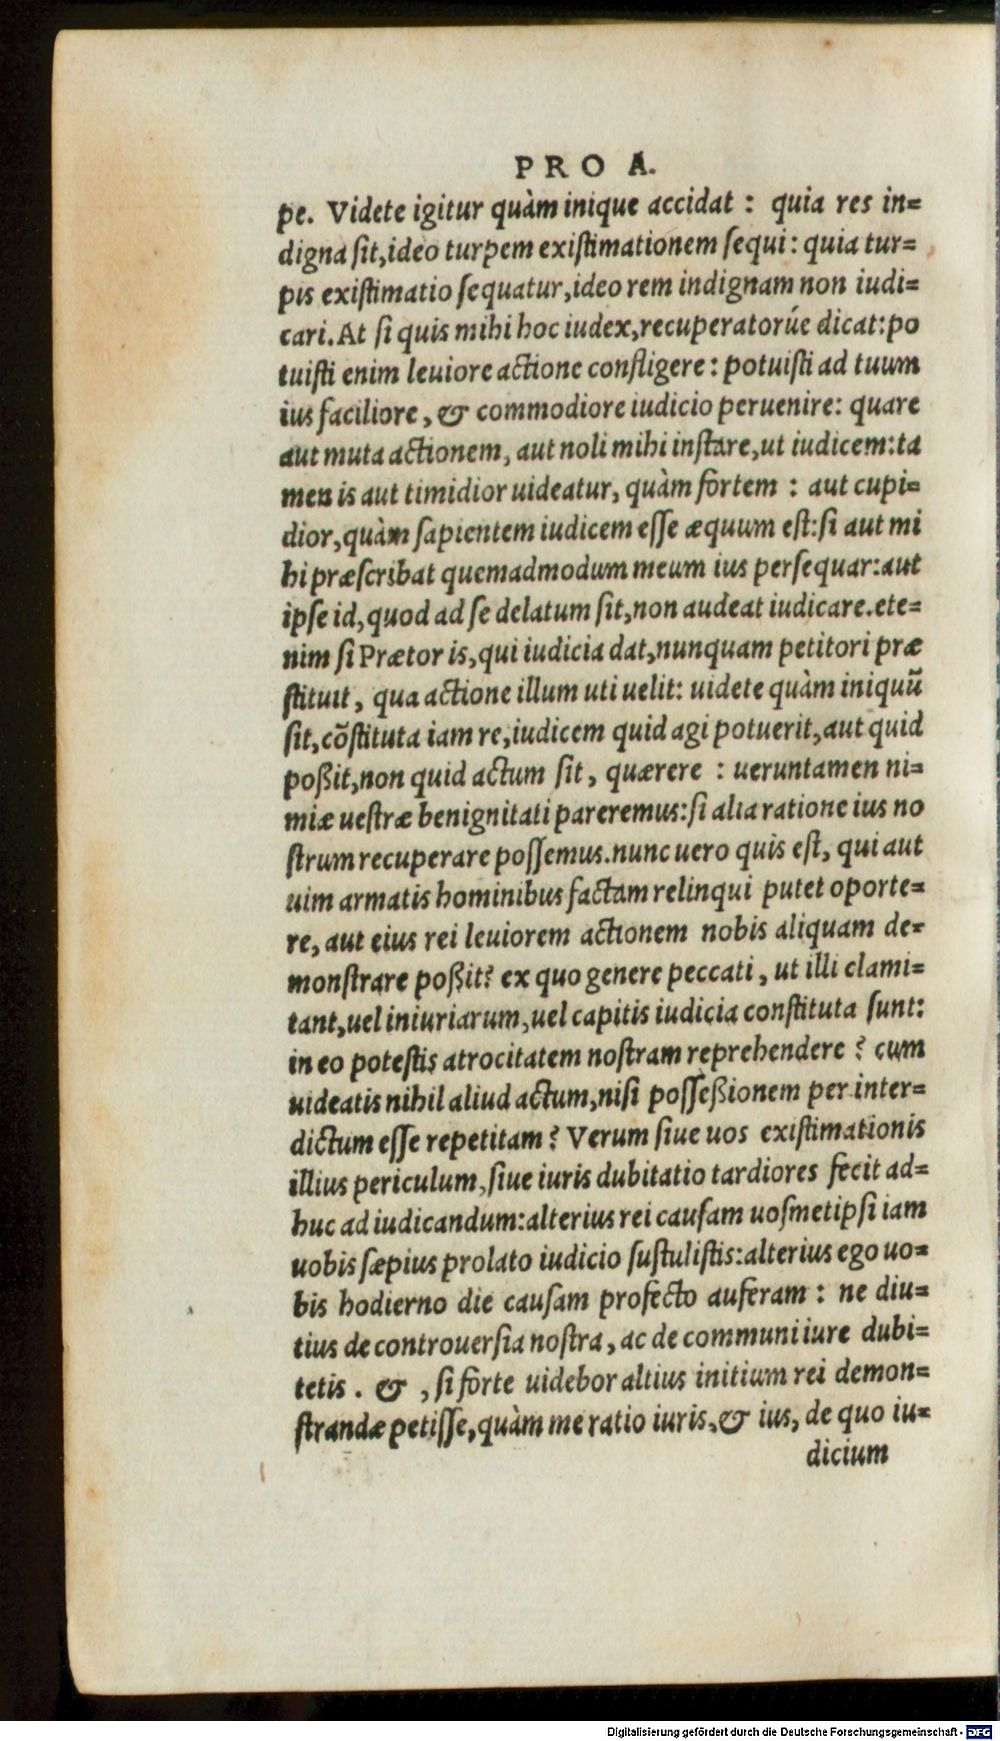 PRO A.
pe. Videte igitur quàm inique accidat : quia res in=
digna ſit,ideo turpem exiſtimationem ſequi: quia tur=
pis exiſtimatio ſequatur,ideo rem indignam non iudi=
cari.At ſi quis mihi hoc iudex,recuperatorúe dicat:po
tuiſti enim leuiore actione confligere: potuiſti ad tuum
ius faciliore, & commodiore iudicio peruenire: quare
aut muta actionem, aut noli mihi inſtare,ut iudicem:ta
men is aut timidior uideatur, quàm fortem : aut cupi=
dior,quàm ſapientem iudicem eſſe æquum eſt:ſi aut mi
hi præſcribat quemadmodum meum ius perſequar:aut
ipſe id,quod ad ſe delatum ſit,non audeat iudicare.ete=
nim ſi Prætor is,qui iudicia dat,nunquam petitori præ
ſtituit, qua actione illum uti uelit: uidete quàm iniquū
ſit,cōſtituta iam re,iudicem quid agi potuerit,aut quid
poßit,non quid actum ſit, quærere : ueruntamen ni=
miæ ueſtræ benignitati pareremus:ſi alia ratione ius no
ſtrum recuperare poſſemus.nunc uero quis eſt, qui aut
uim armatis hominibus factam relinqui putet oporte=
re, aut eius rei leuiorem actionem nobis aliquam de=
monſtrare poßit? ex quo genere peccati, ut illi clami=
tant,uel iniuriarum,uel capitis iudicia conſtituta ſunt:
in eo poteſtis atrocitatem noſtram reprehendere ? cum
uideatis nihil aliud actum,niſi poſſeßionem per inter=
dictum eſſe repetitam? Verum ſiue uos exiſtimationis
illius periculum,ſiue iuris dubitatio tardiores fecit ad=
huc ad iudicandum:alterius rei cauſam uoſmetipſi iam
uobis ſæpius prolato iudicio ſuſtuliſtis:alterius ego uo=
bis hodierno die cauſam profecto auferam : ne diu=
tius de controuerſia noſtra, ac de communi iure dubi=
tetis . & , ſi forte uidebor altius initium rei demon=
ſtrandæ petiſſe,quàm me ratio iuris,& ius, de quo iu=
dicium
Digitalisierung gefördert durch die Deutsche Forschungsgemeinschaft - DFG